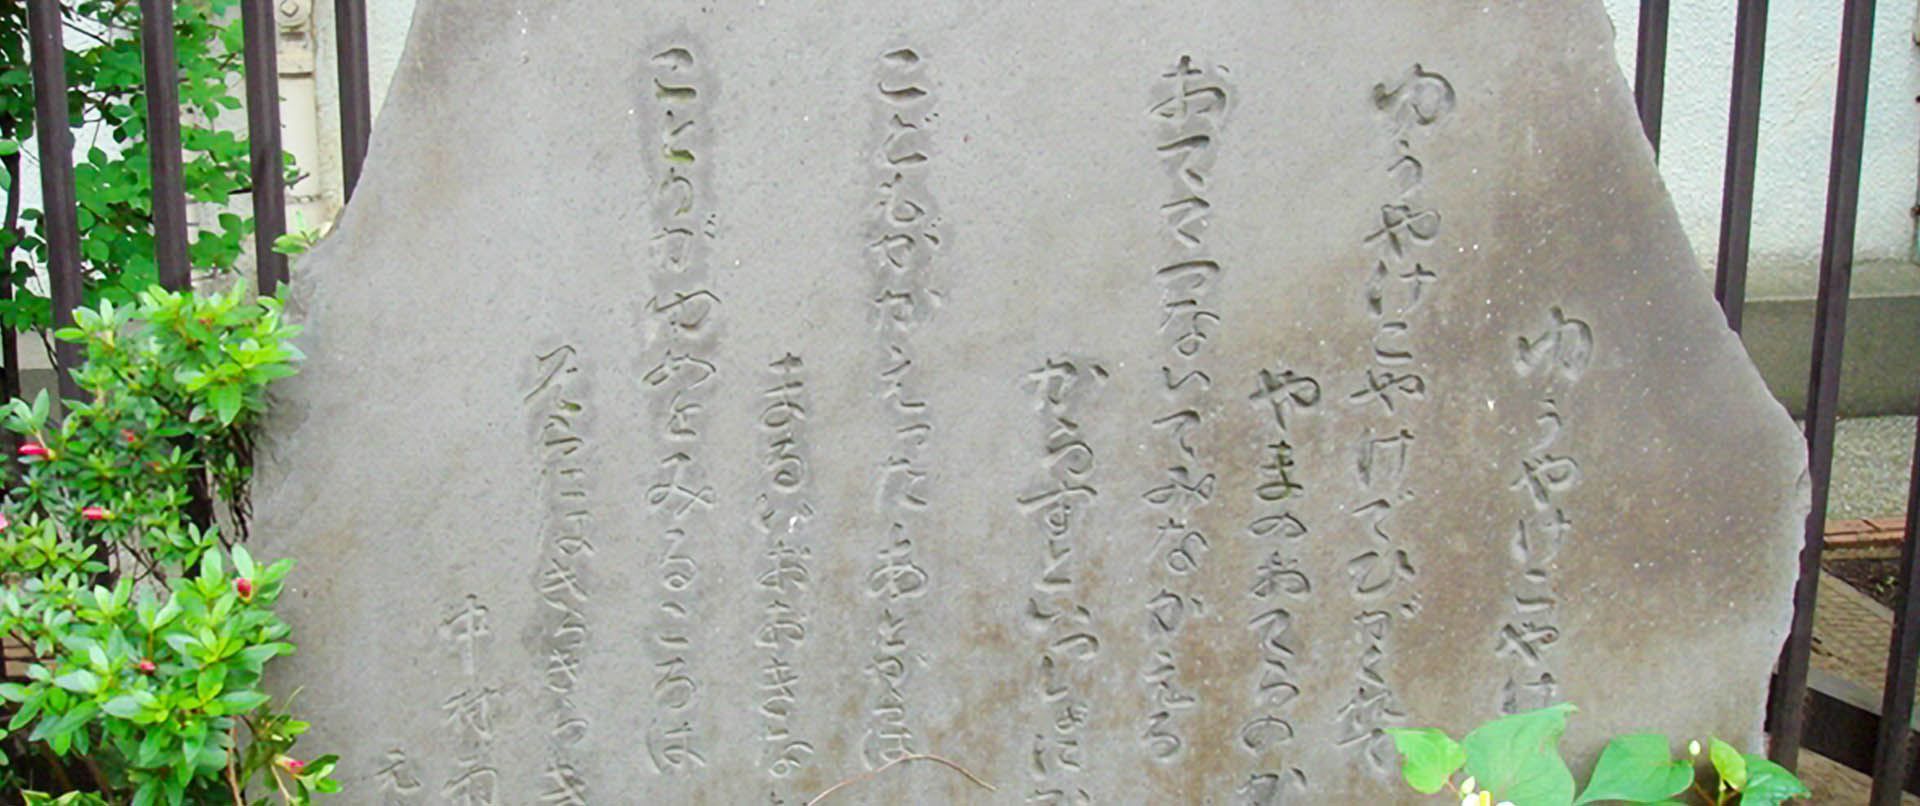 ゆうやけこやけ
ゆうやけこやけでひがくれて
やまのおてらのか
おててつないてみなかえる
からすといっしょにか
こどもがかえったあとからは
まるいおおきな
ことりがゆめをみるころは
そらにはきらきらき
中村雨
元